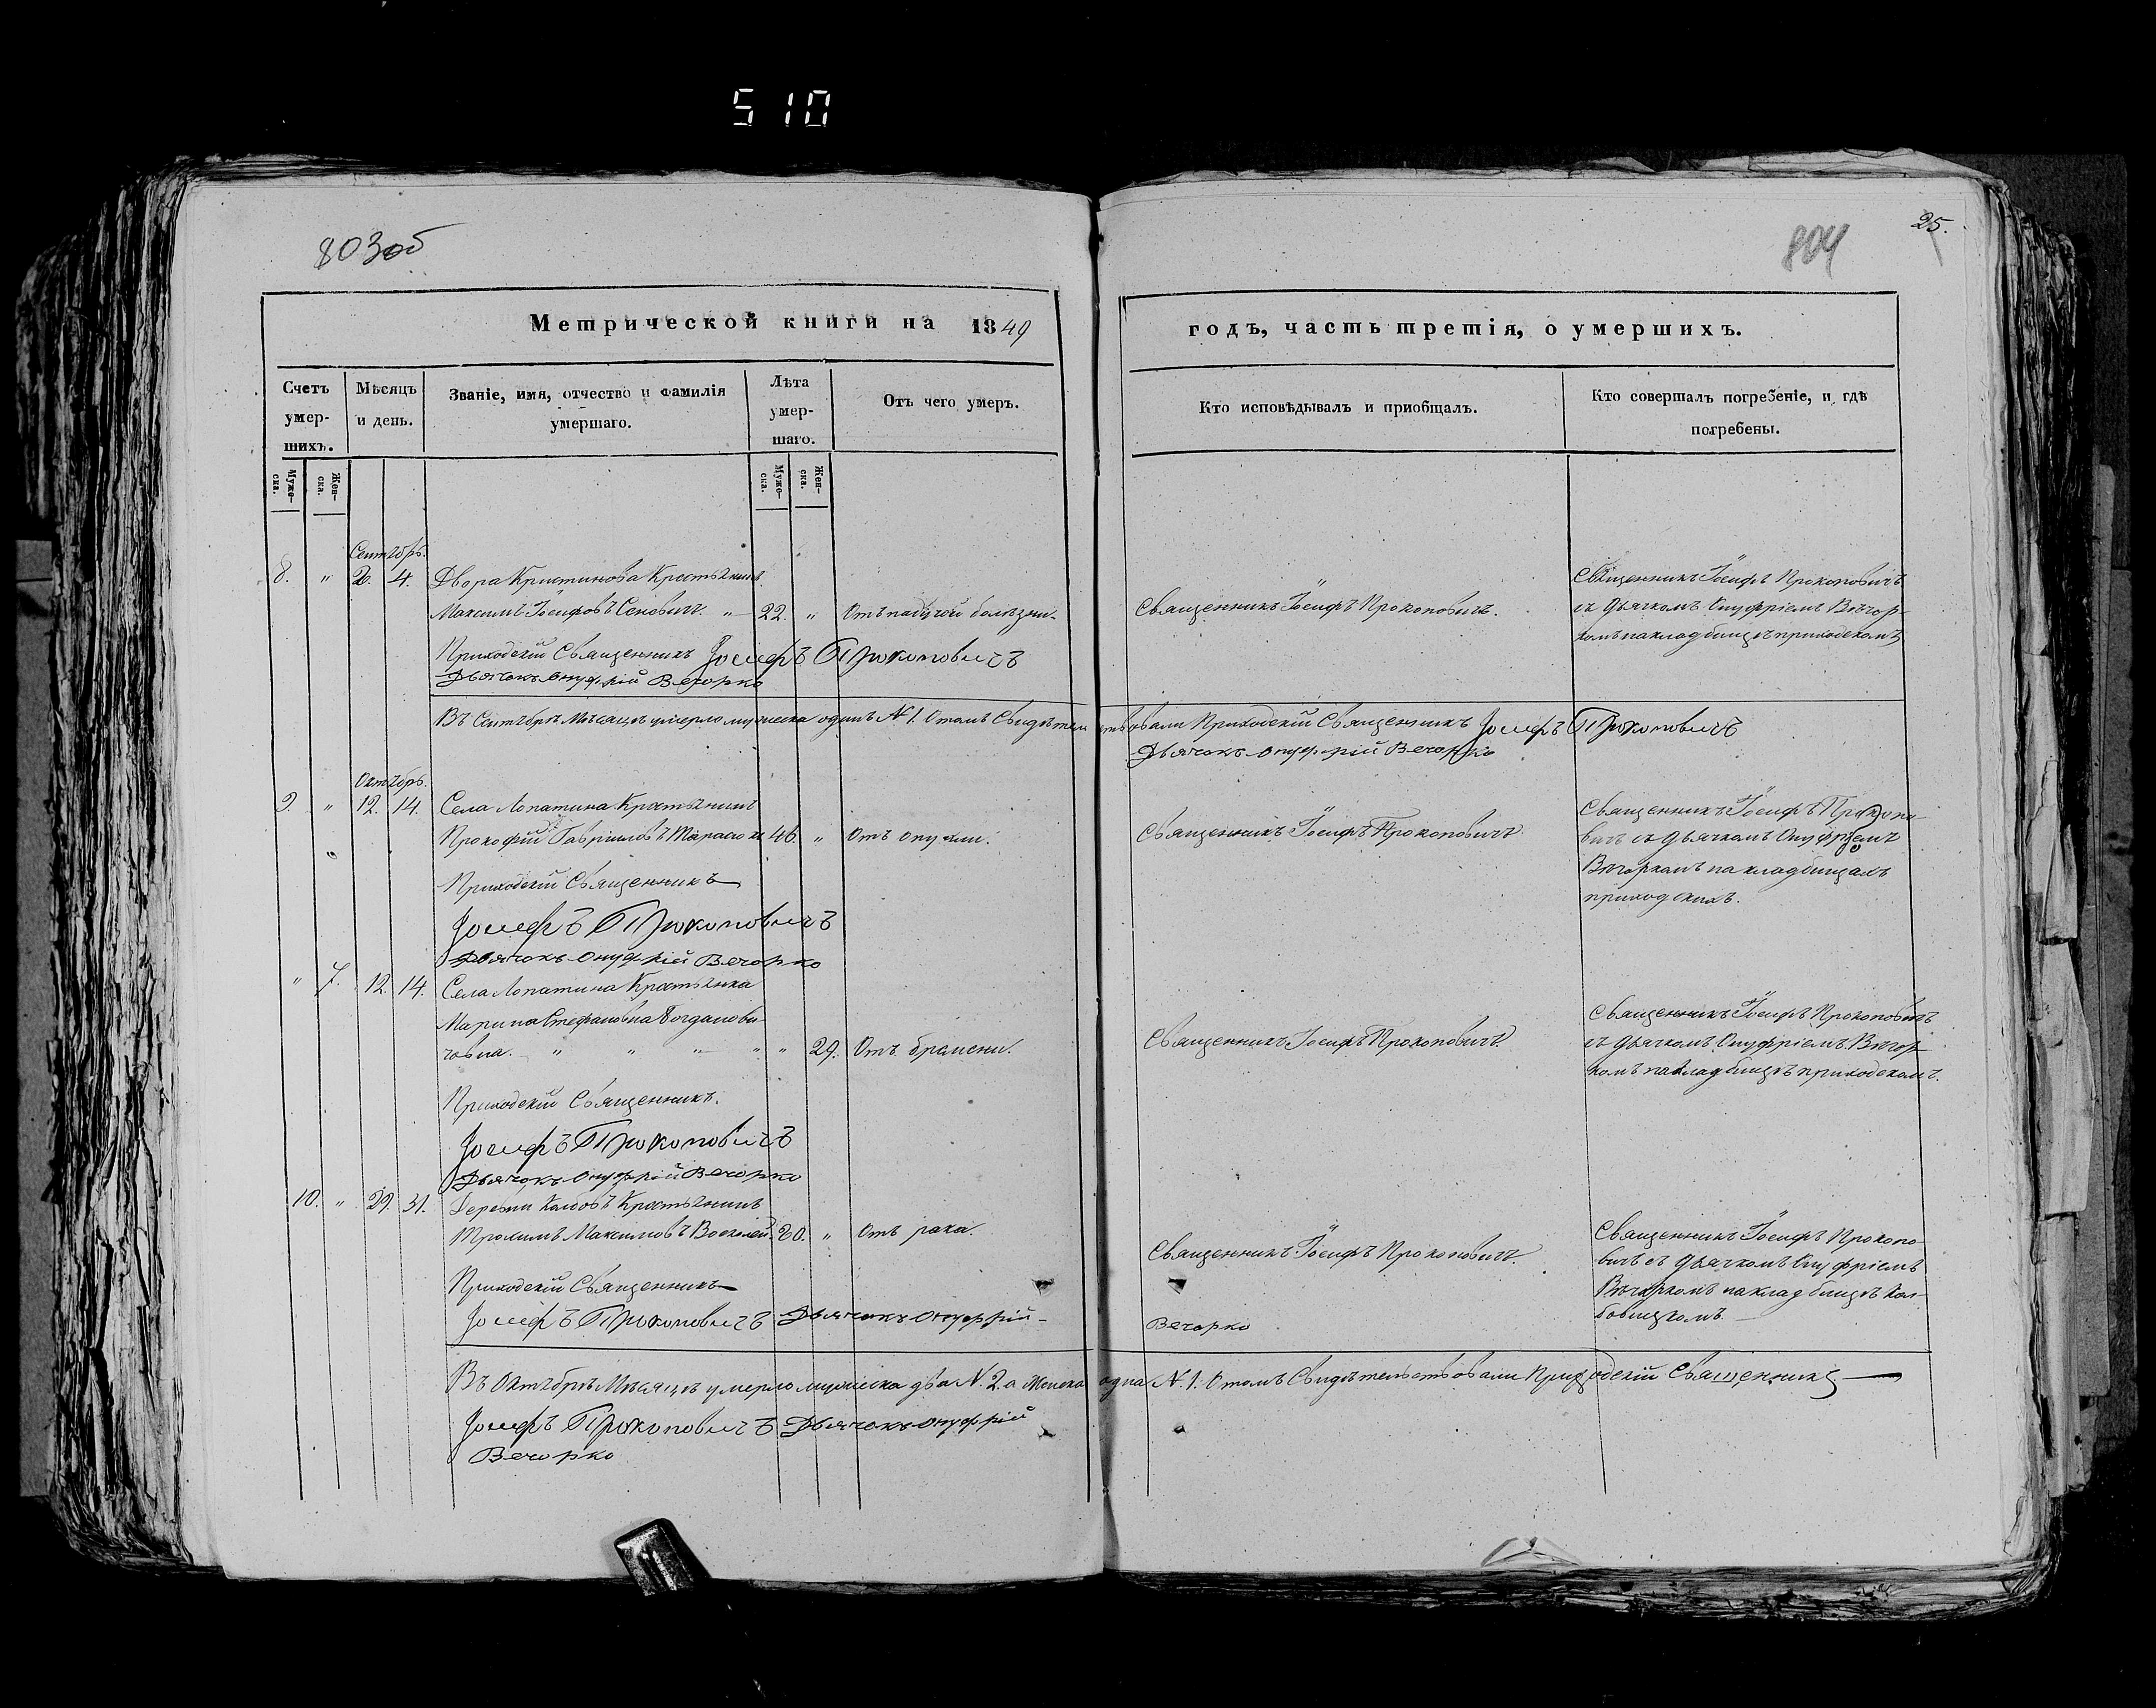 510
803об
804
25.
Метрической книги на 1849
годъ, часть третія, о умершихъ.
Счетъ умер-шихъ.
Мѣсяцъ и день.
Званіе, имя, отчество и фамилія
умершаго.
Лѣта умер-шаго.
Отъ чего умеръ.
Кто исповѣдывалъ и приобщалъ.
Кто совершалъ погребеніе, и гдѣ
погребены.
Муже-ска.
Жен-ска.
Муже-ска.
Жен-ска.
Сентябрь.
8. " 2. 4. Двора Кристинова Крестьянинъ
Максимъ Іосифовъ Сенович. " 22. " Отъ падучей болѣзни.
Священникъ Іосифъ Прокоповичъ.
Священникъ Іосифъ Прокоповичъ
съ дьячкомъ Онуфріемъ Вечор-
комъ на кладбищѣ приходскомъ
Приходскій Священникъ Іосифъ Прокоповичъ
Дьячокъ Онуфрій Вечорко
Въ Сентябрѣ Мѣсяцѣ умерло мужеска одинъ N 1. О томъ Свидѣтельствовали Приходскій Священникъ Іосифъ Прокоповичъ
Дьячокъ Онуфрій Вечорко
Октябрь.
9. " 12. 14. Села Лопатина Крестьянинъ
Прокофій Гавріиловъ 46. " Отъ опухли.
Священникъ Іосифъ Прокоповичъ
Священникъ Іосифъ Прокопо-
вичъ съ дьячкомъ Онуфріемъ
Вечоркомъ на кладбищахъ
приходскихъ.
Приходскій Священникъ
Іосифъ Прокоповичъ
Дьячокъ Онуфрій Вечорко
" 7. 12. 14. Села Лопатина Крестьянка
Марина Стефановна Богданови-
човна. " " " " " 29. Отъ бремени.
Священникъ Іосифъ Прокоповичъ.
Священникъ Іосифъ Прокоповичъ
съ дьячкомъ Онуфріемъ Вечор-
комъ на кладбищѣ приходскомъ.
Приходскій Священникъ.
Іосифъ Прокоповичъ
Дьячокъ Онуфрій Вечорко
10. " 29. 31. Деревни Колбовъ Крестьянинъ
Трохимъ Максимовъ 20. " Отъ рака.
Священникъ Іосифъ Прокоповичъ.
Священникъ Іосифъ Прокопо-
вичъ съ дьячкомъ Онуфріемъ
Вечоркомъ на кладбищѣ Кол-
бовицкомъ.
Приходскій Священникъ
Іосифъ Прокоповичъ Дьячокъ Онуфрій
Вечорко
Въ Октябрѣ Мѣсяцѣ умерло мужеска два N. 2. а Женска одна N 1. О томъ Свидѣтельствовали Приходскій Священникъ
Іосифъ Прокоповичъ Дьячокъ Онуфрій
Вечорко